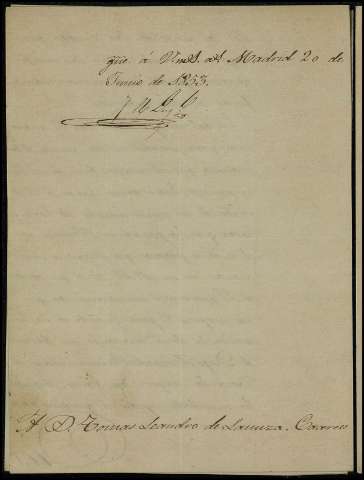 que á Vmd. as. Madrid 20 de
Junio de 1853.
A D. Tomas Leandro de Lanuza. Correo